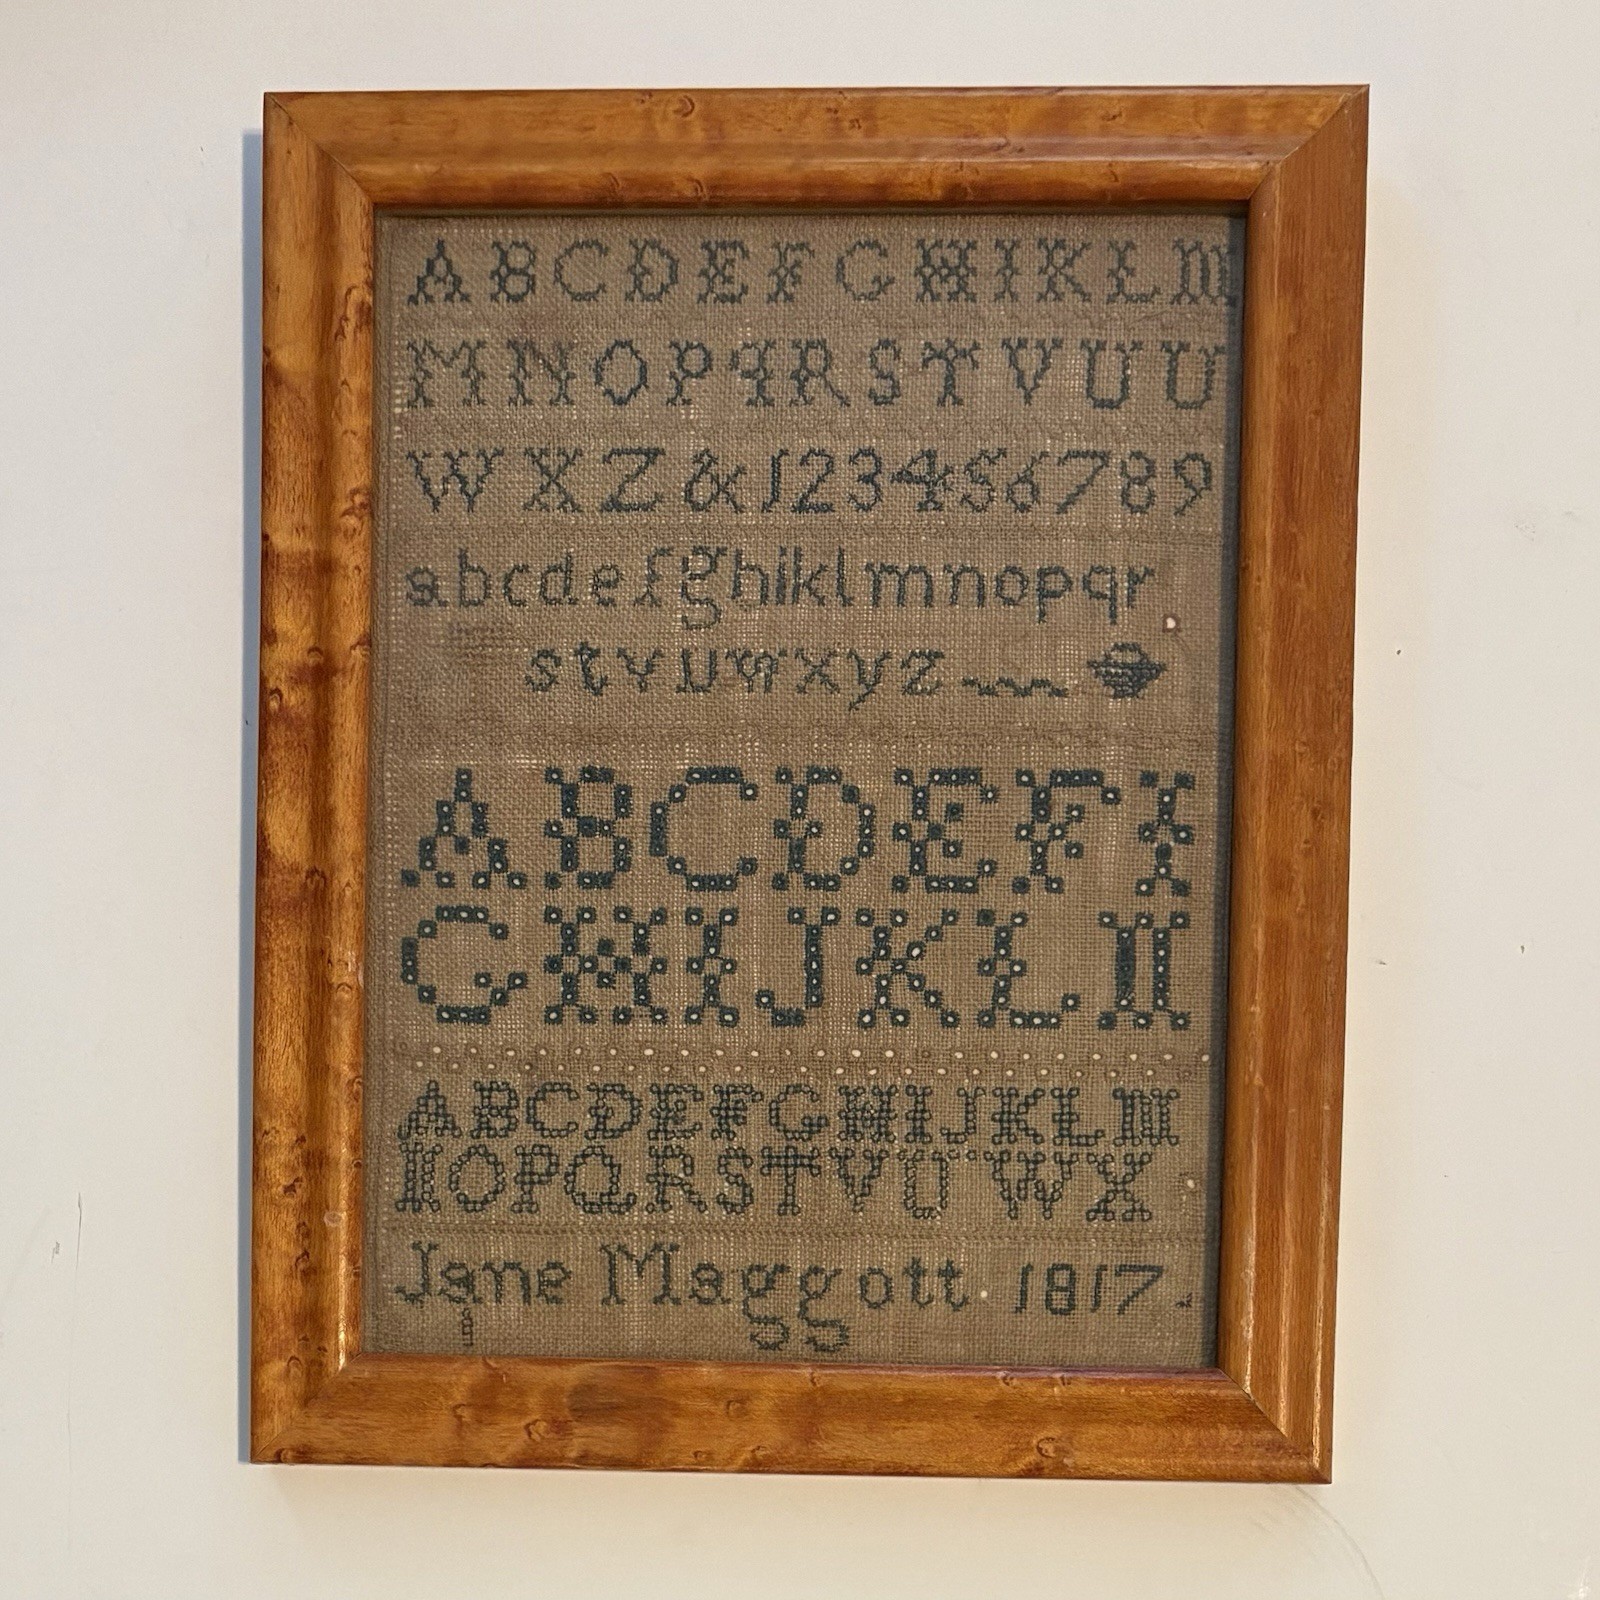 A B C D E F G H I K L M
M N O P q R S T V U U
W X Z & 1 2 3 4 5 6 7 8 9
a b c d e f g h i k l m n o p q r
s t v u w x y z
A B C D E F I
G H I J K L M
A B C D E F G H I J K L M
N O P Q R S T V U W X
Jane Maggott 1817